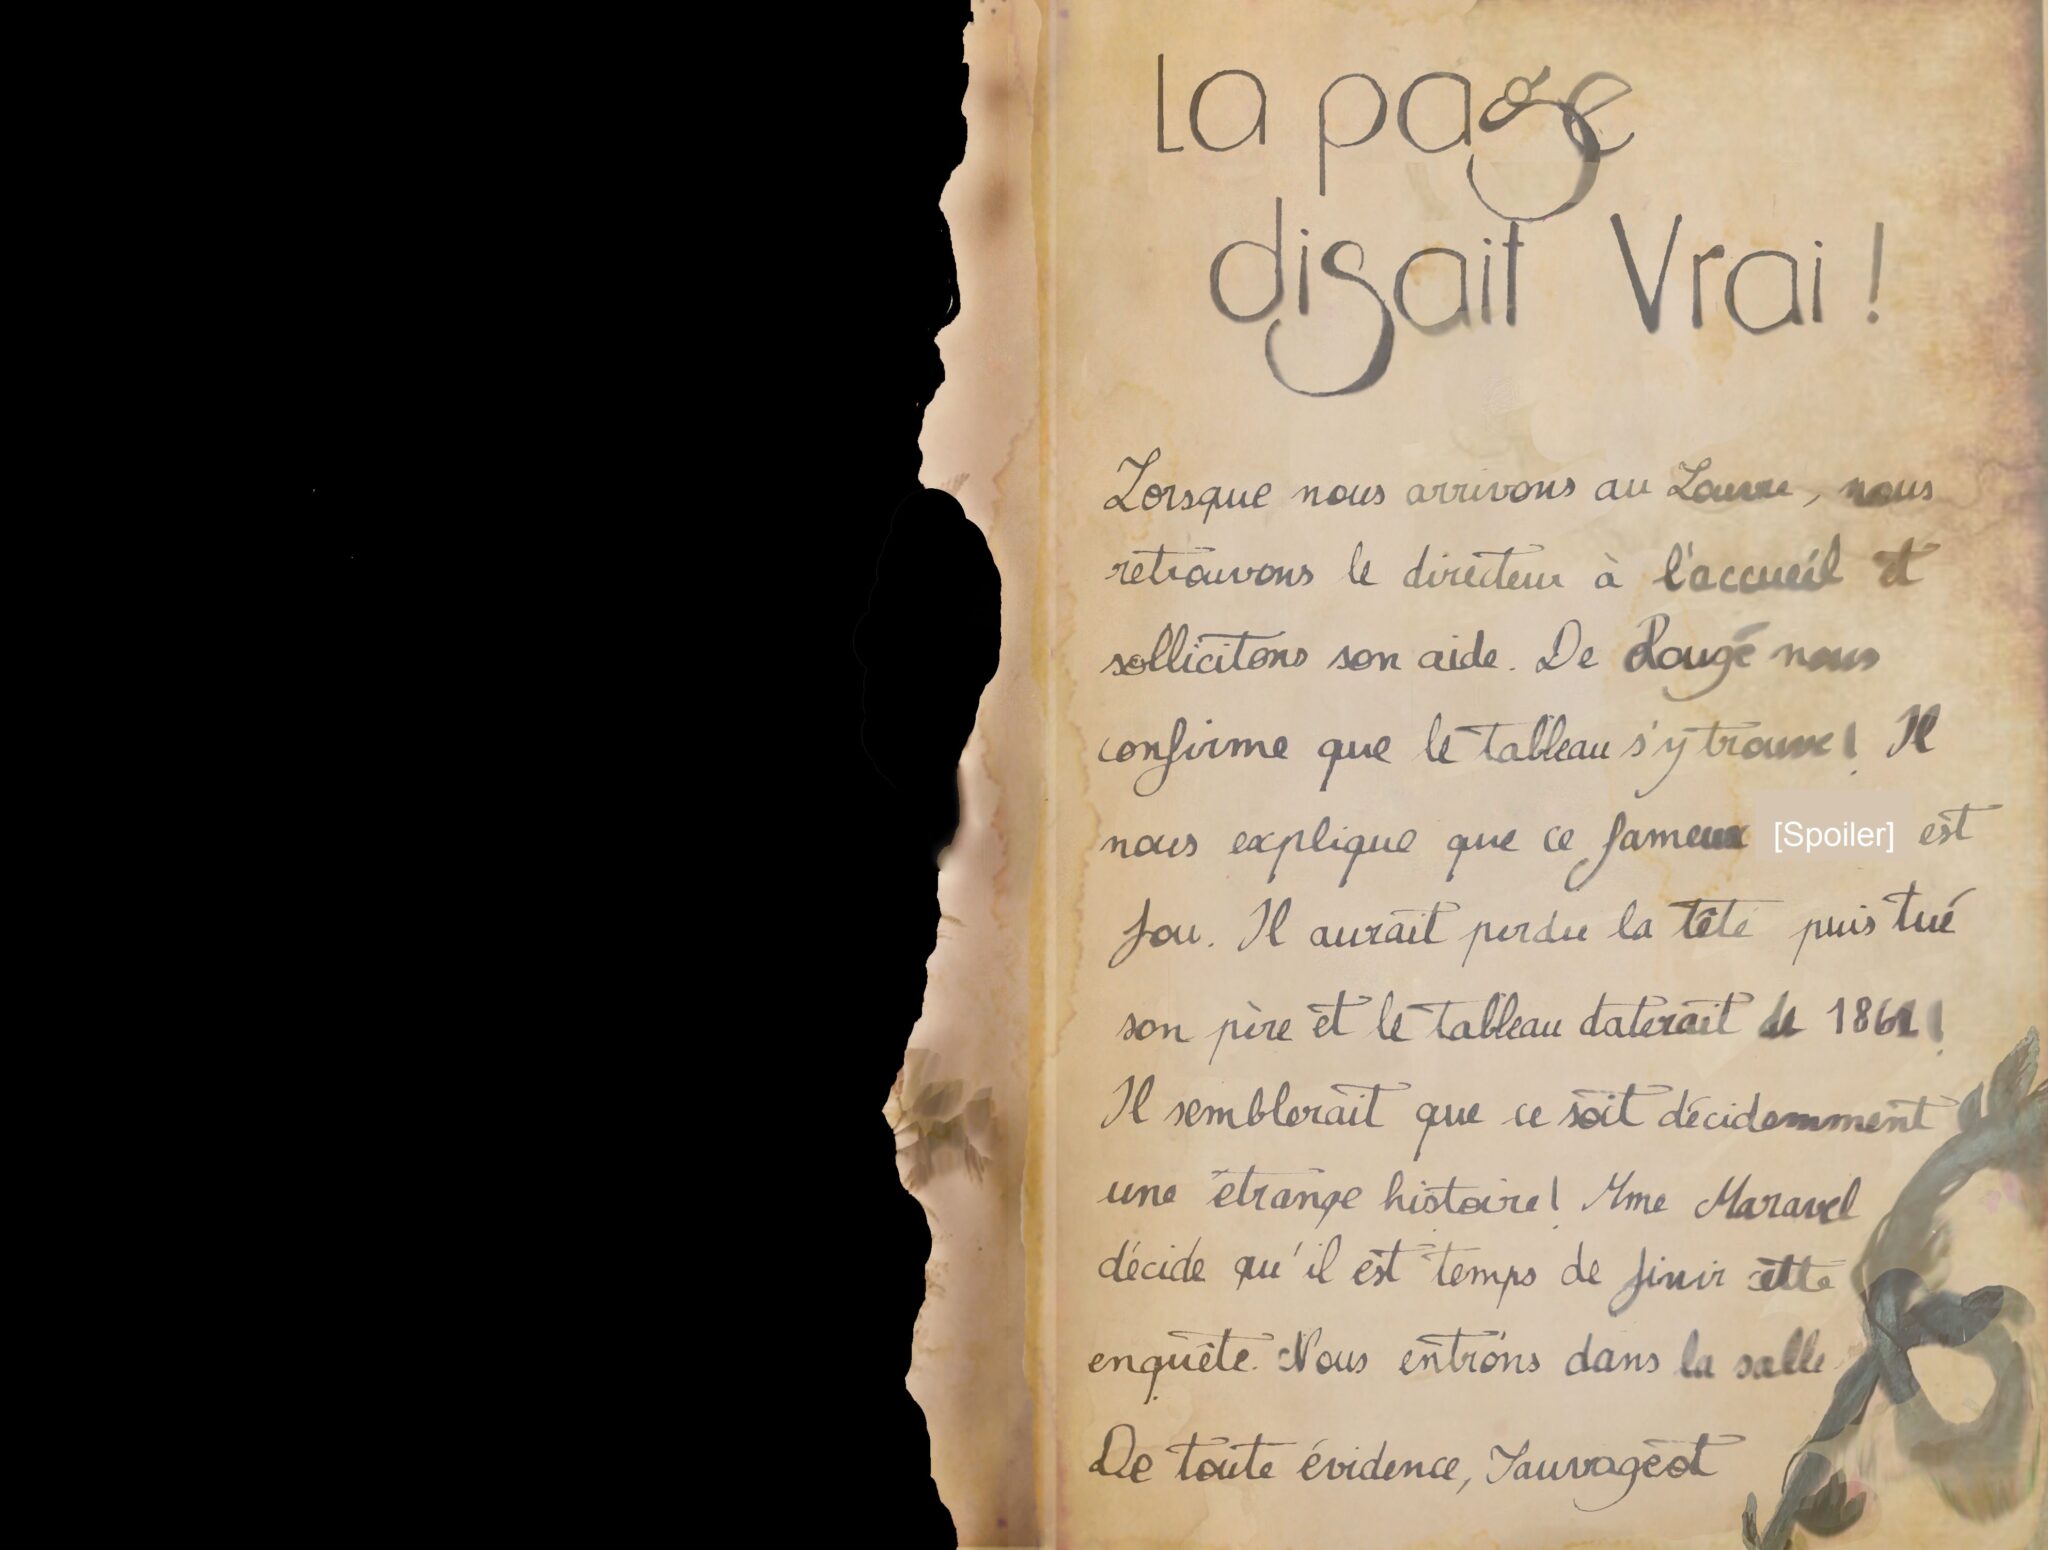 La page
disait Vrai !
Lorsque nous arrivons au Louvre, nous
retrouvons le directeur à l'accueil et
sollicitons son aide. De Rougé nous
confirme que le tableau s'y trouve ! Il
nous explique que ce fameux [Spoiler] est
fou. Il aurait perdu la tête puis tué
son père et le tableau daterait de
Il semblerait que ce soit décidemment
une étrange histoire ! Mme Maravel
décide qu'il est temps de finir cette
enquête. Nous entrons dans la salle
De toute évidence, Sauvageot